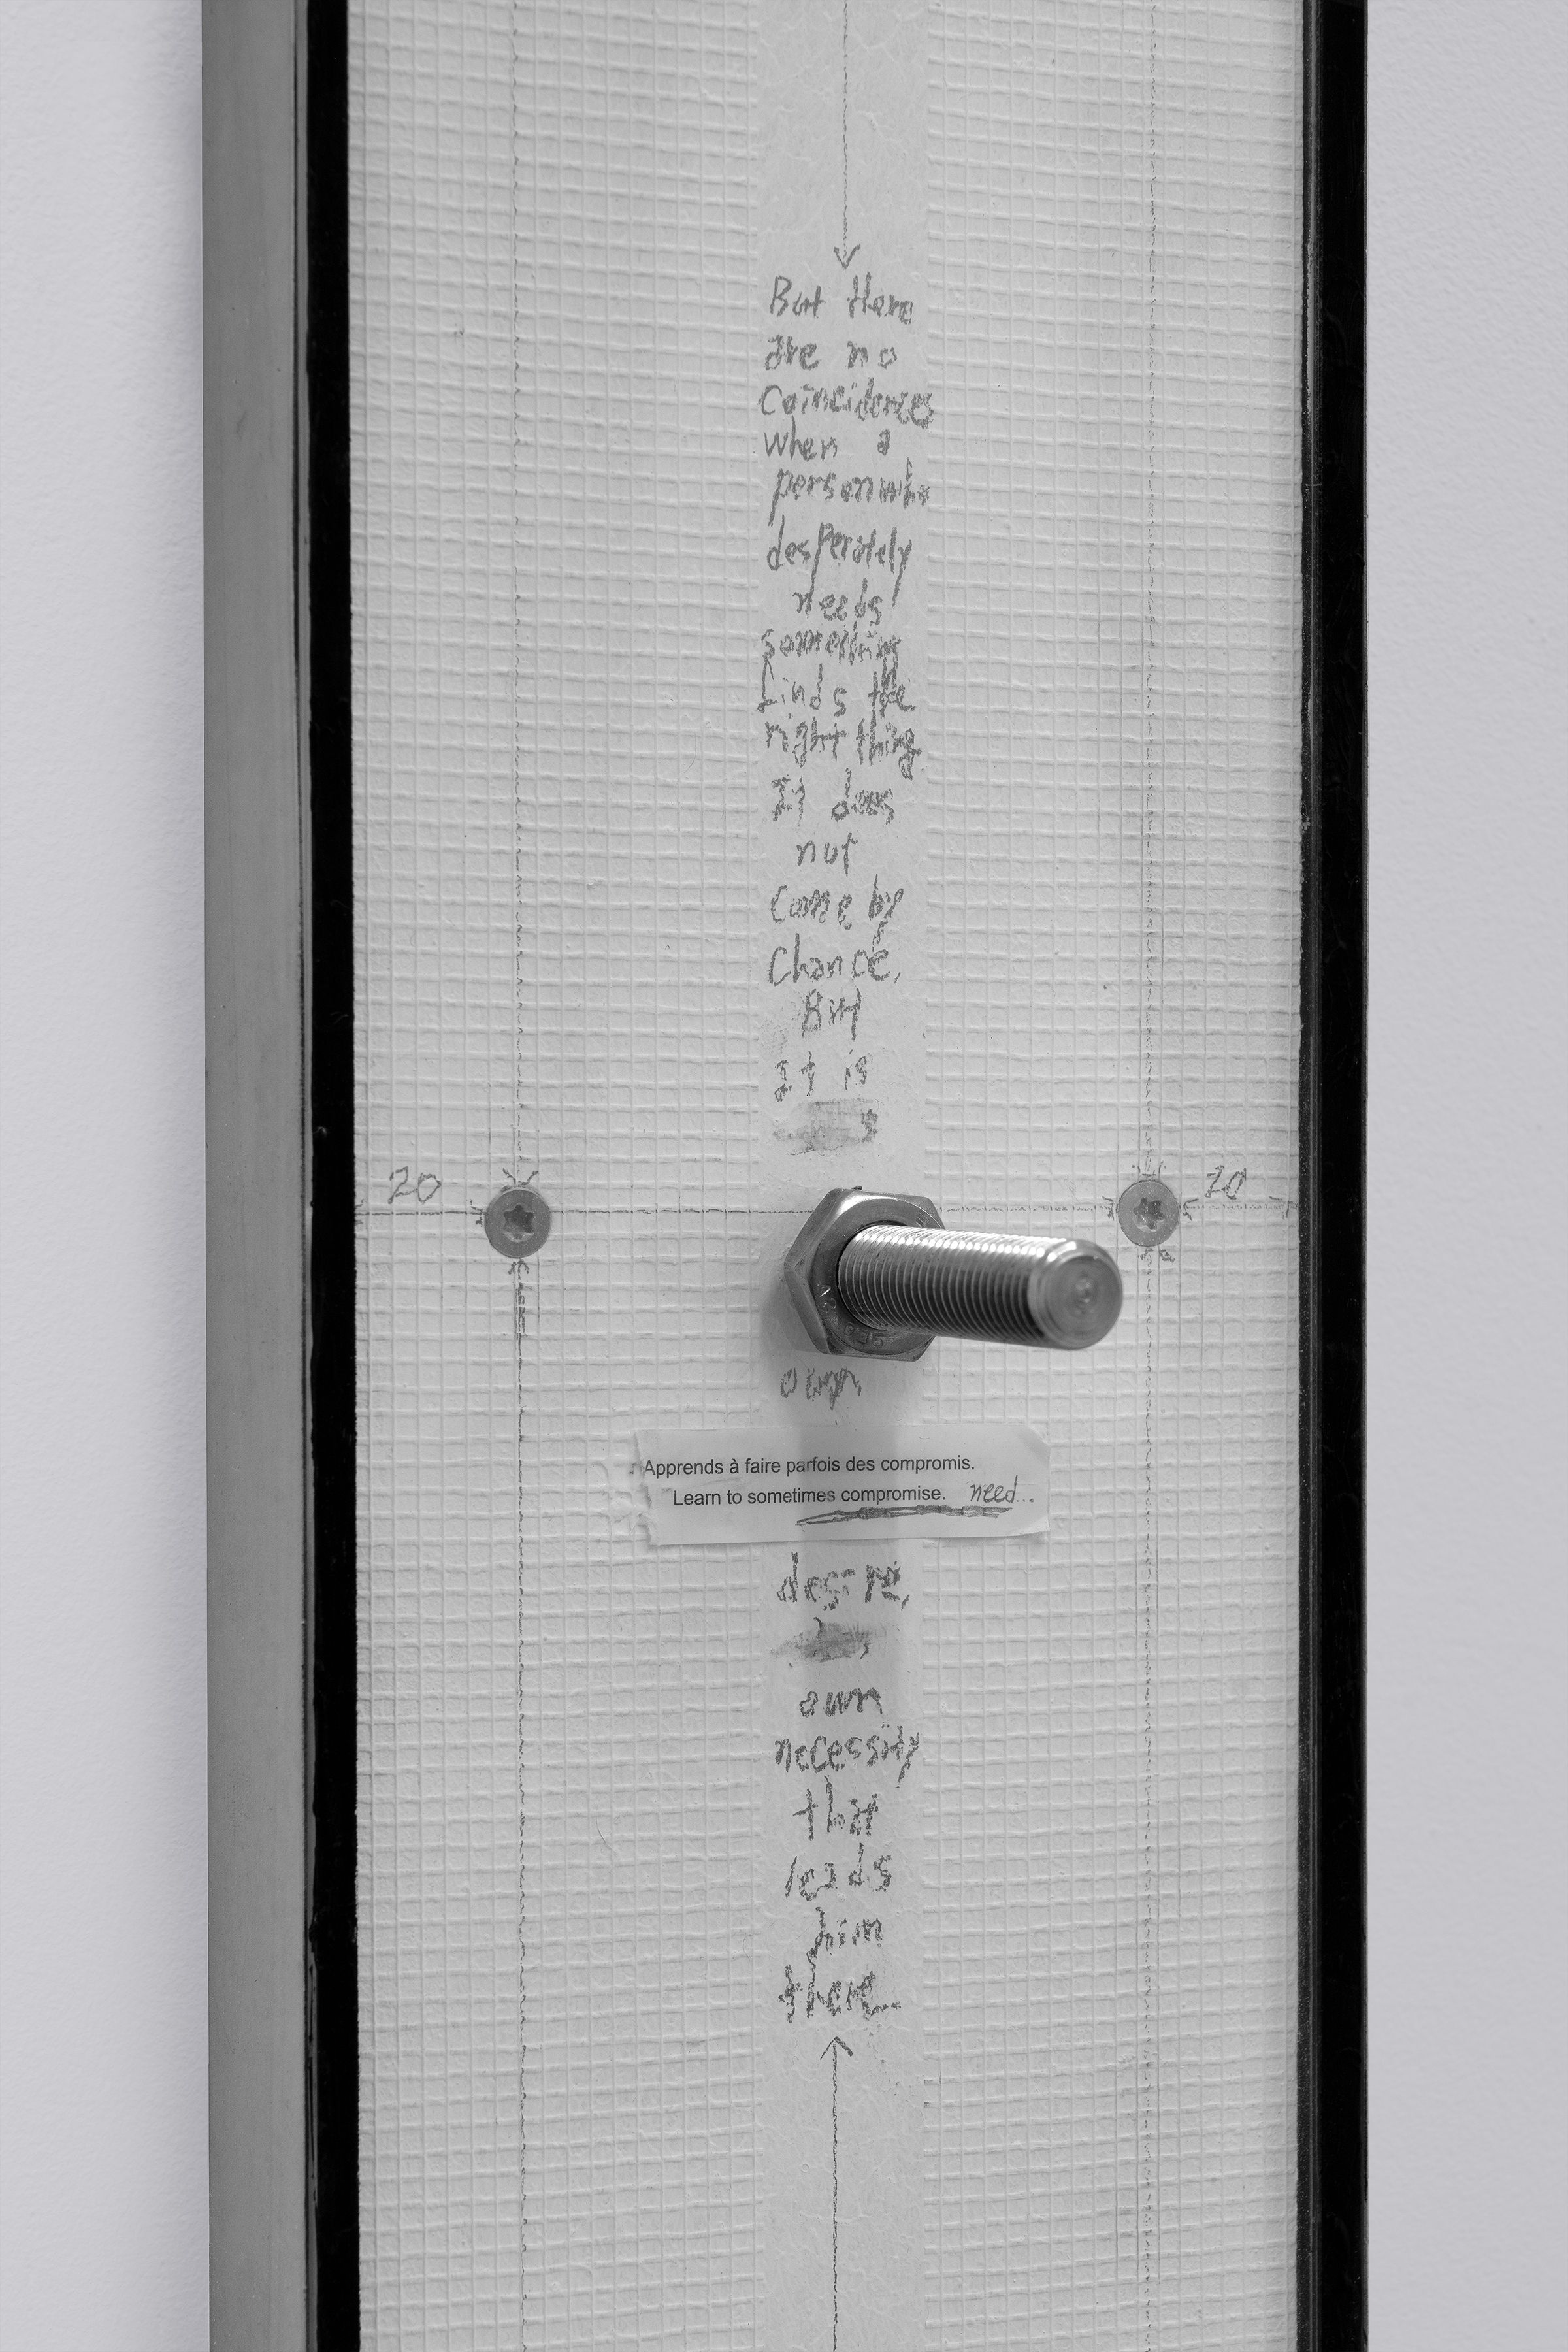 But there
are no
coincidences
when a
person who
desperately
needs
something
finds the
right thing
It does
not
come by
chance,
But
it is
20
20
A2 935
own
Apprends à faire parfois des compromis.
Learn to sometimes compromise. need...
desire,
own
necessity
that
leads
him
there.